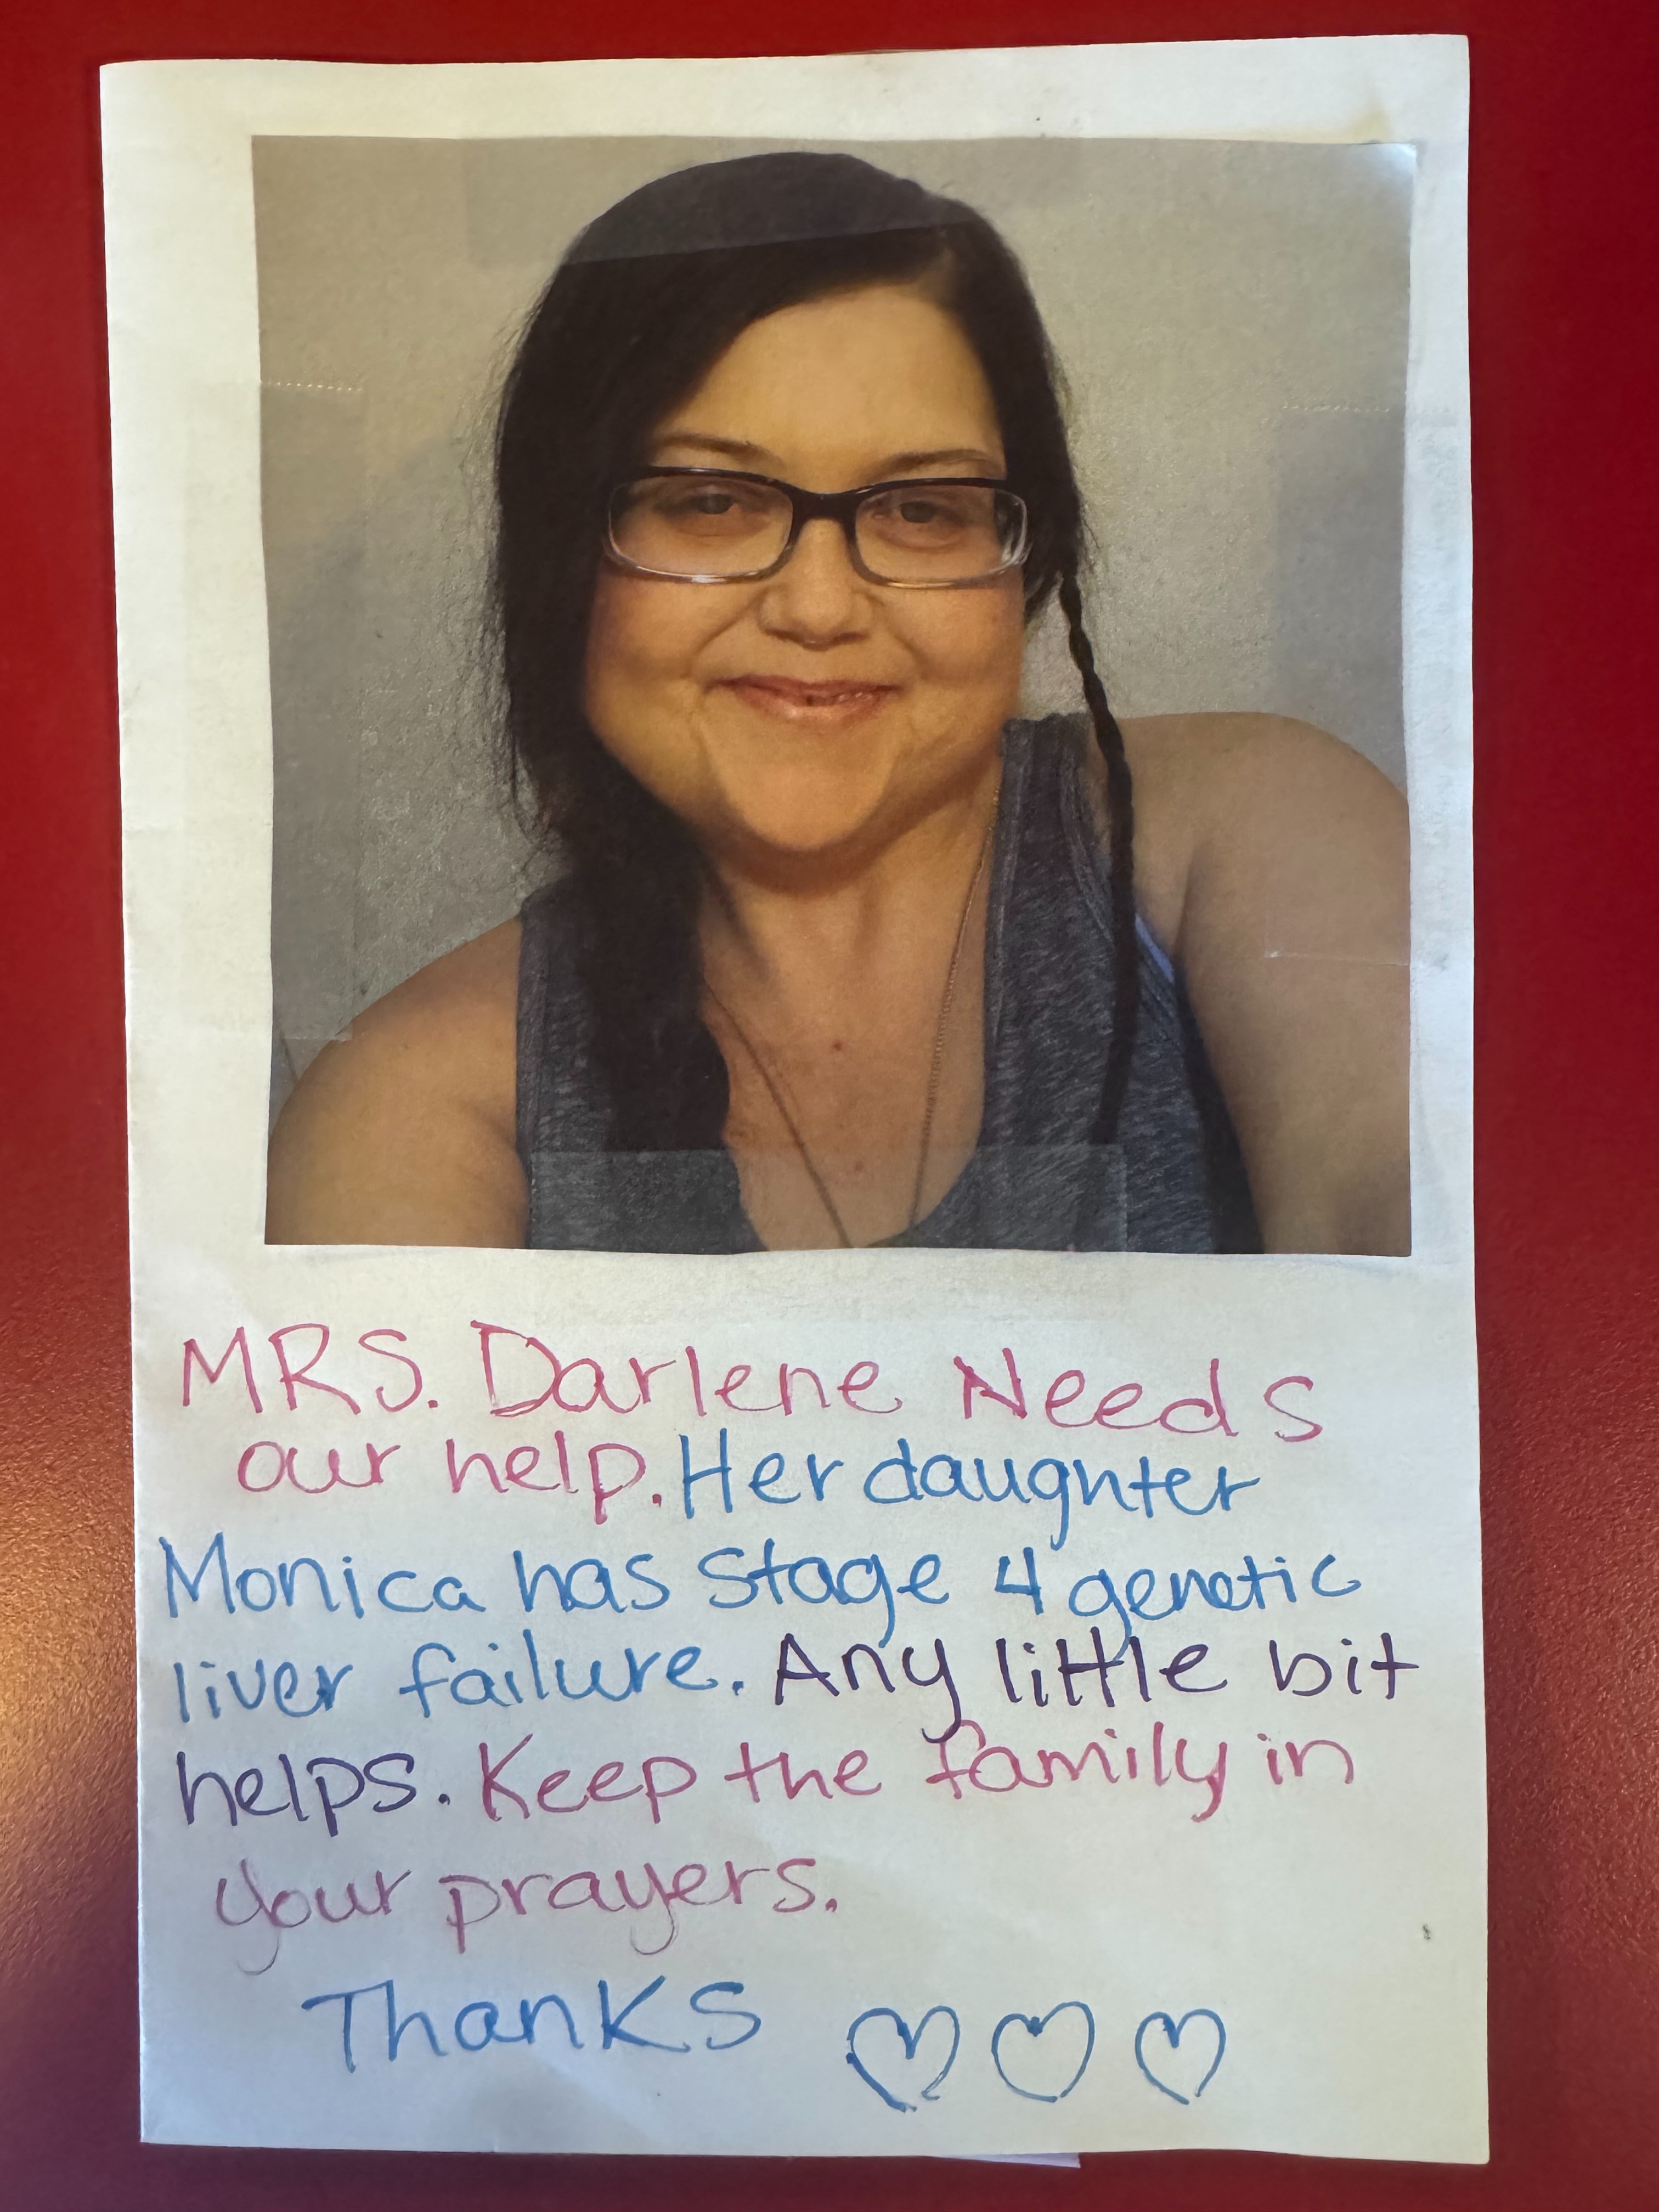 MRS. Darlene Needs
our help. Her daughter
Monica has Stage 4 genetic
liver failure. Any little bit
helps. Keep the family in
your prayers.
Thanks